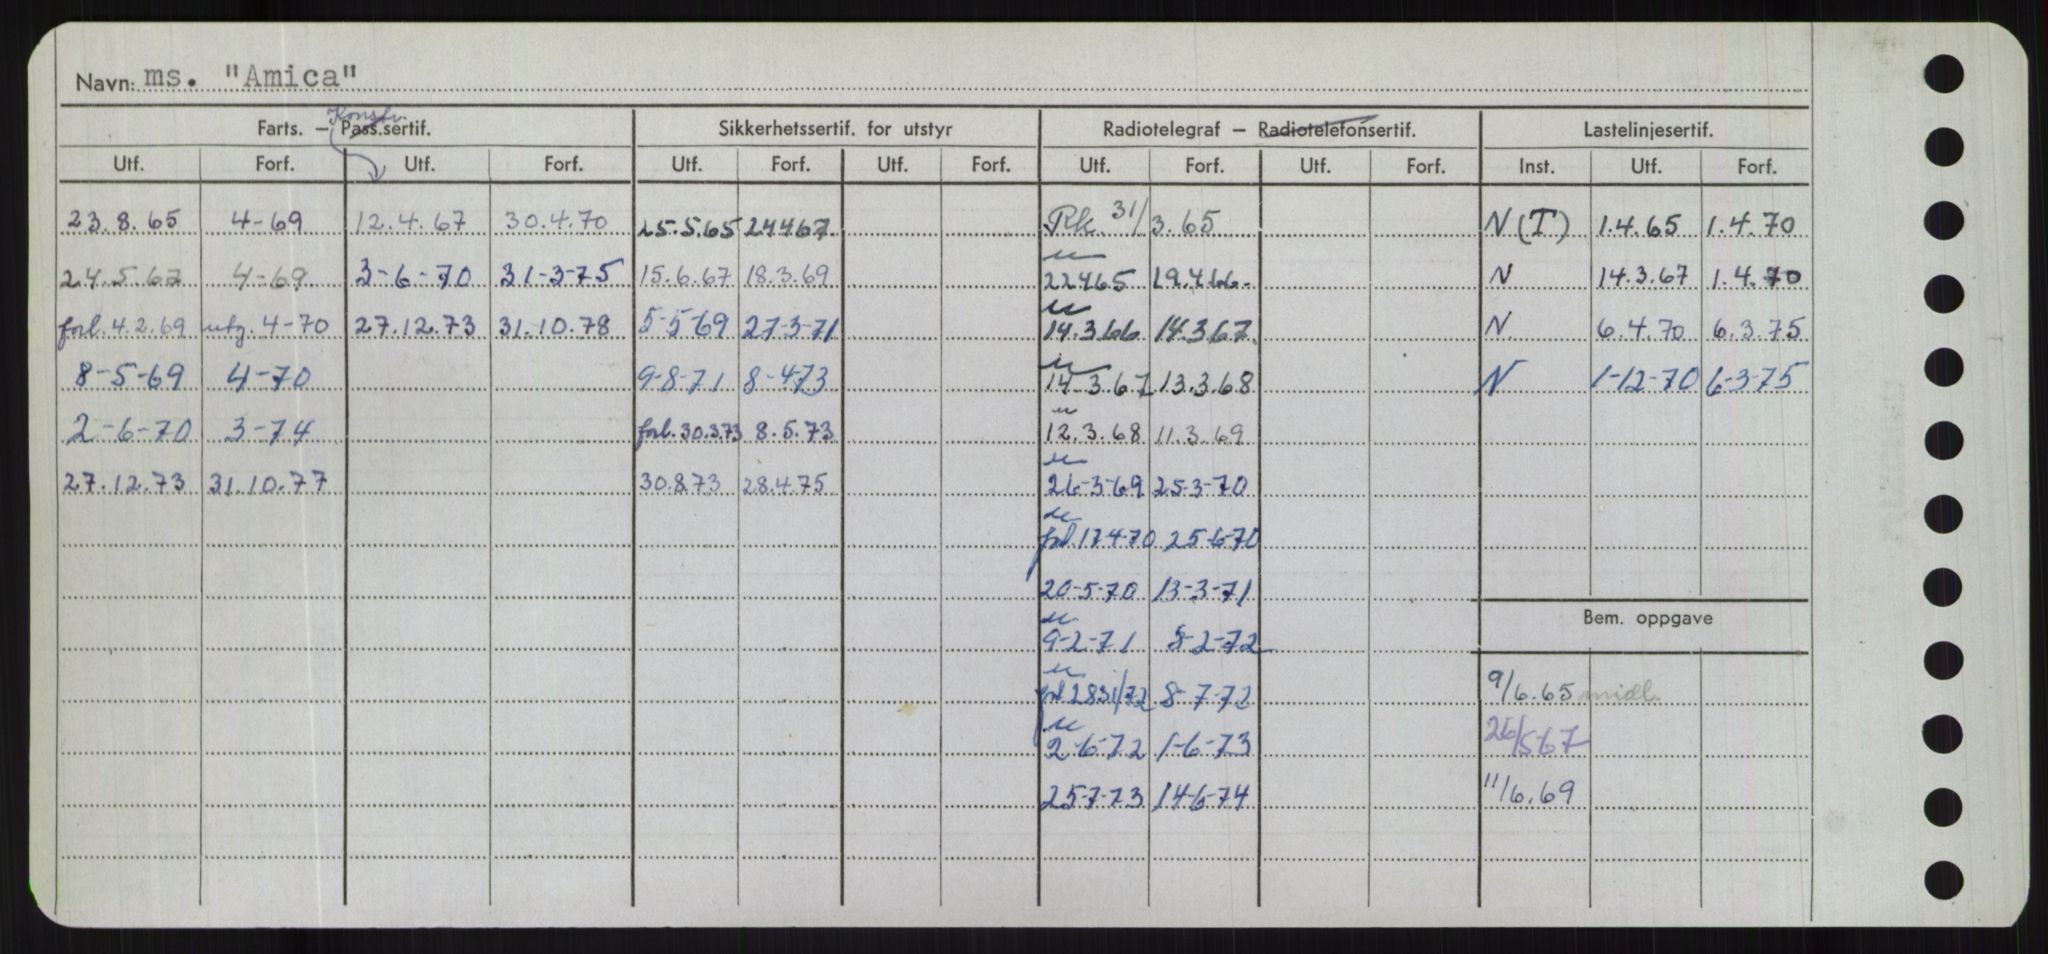 Navn: ms. "Amica"
Konstr.
Farts. – Pass.sertif. Sikkerhetssertif. for utstyr Radiotelegraf – Radiotelefonsertif. Lastelinjesertif.
Utf. Forf. Utf. Forf. Utf. Forf. Utf. Forf. Utf. Forf. Utf. Forf. Inst. Utf. Forf.
23.8.65 4-69 12.4.67 30.4.70 25.5.65 24467 Rk. 31/3.65 N(T) 1.4.65 1.4.70
24.5.67 4-69 3-6-70 31-3-75 15.6.67 18.3.69 22465 19.4.66. N 14.3.67 1.4.70
forl. 4.2.69 utg. 4-70 27.12.73 31.10.78 5-5-69 27-3-71 14.3.66 14.3.67. N. 6.4.70 6.3.75
8-5-69 4-70 9-8-71 8-4-73 14.3.67 13.3.68 N 1-12-70 6-3-75
2-6-70 3-74 forl. 30.3.73 8.5.73 12.3.68 11.3.69
27.12.73 31.10.77 30.8.73 28.4.75 26-3-69 25-3-70
forl. 17470 25-6-70
20-5-70 13-3-71
Bem. oppgave
9-2-71 8-2-72
8-7-72
9/6.65 midl.
2-6-72 1-6-73 26/5-67
25-7-73 14-6-74 11/6.69